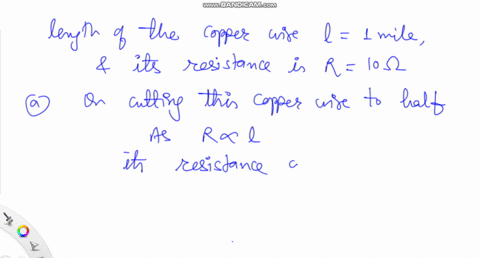 www.BANDICAM.com
length of the copper wire l = 1 mile,
& its resistance is R = 10 Ω
(a) On cutting this copper wire to half
As R ∝ l
its resistance c